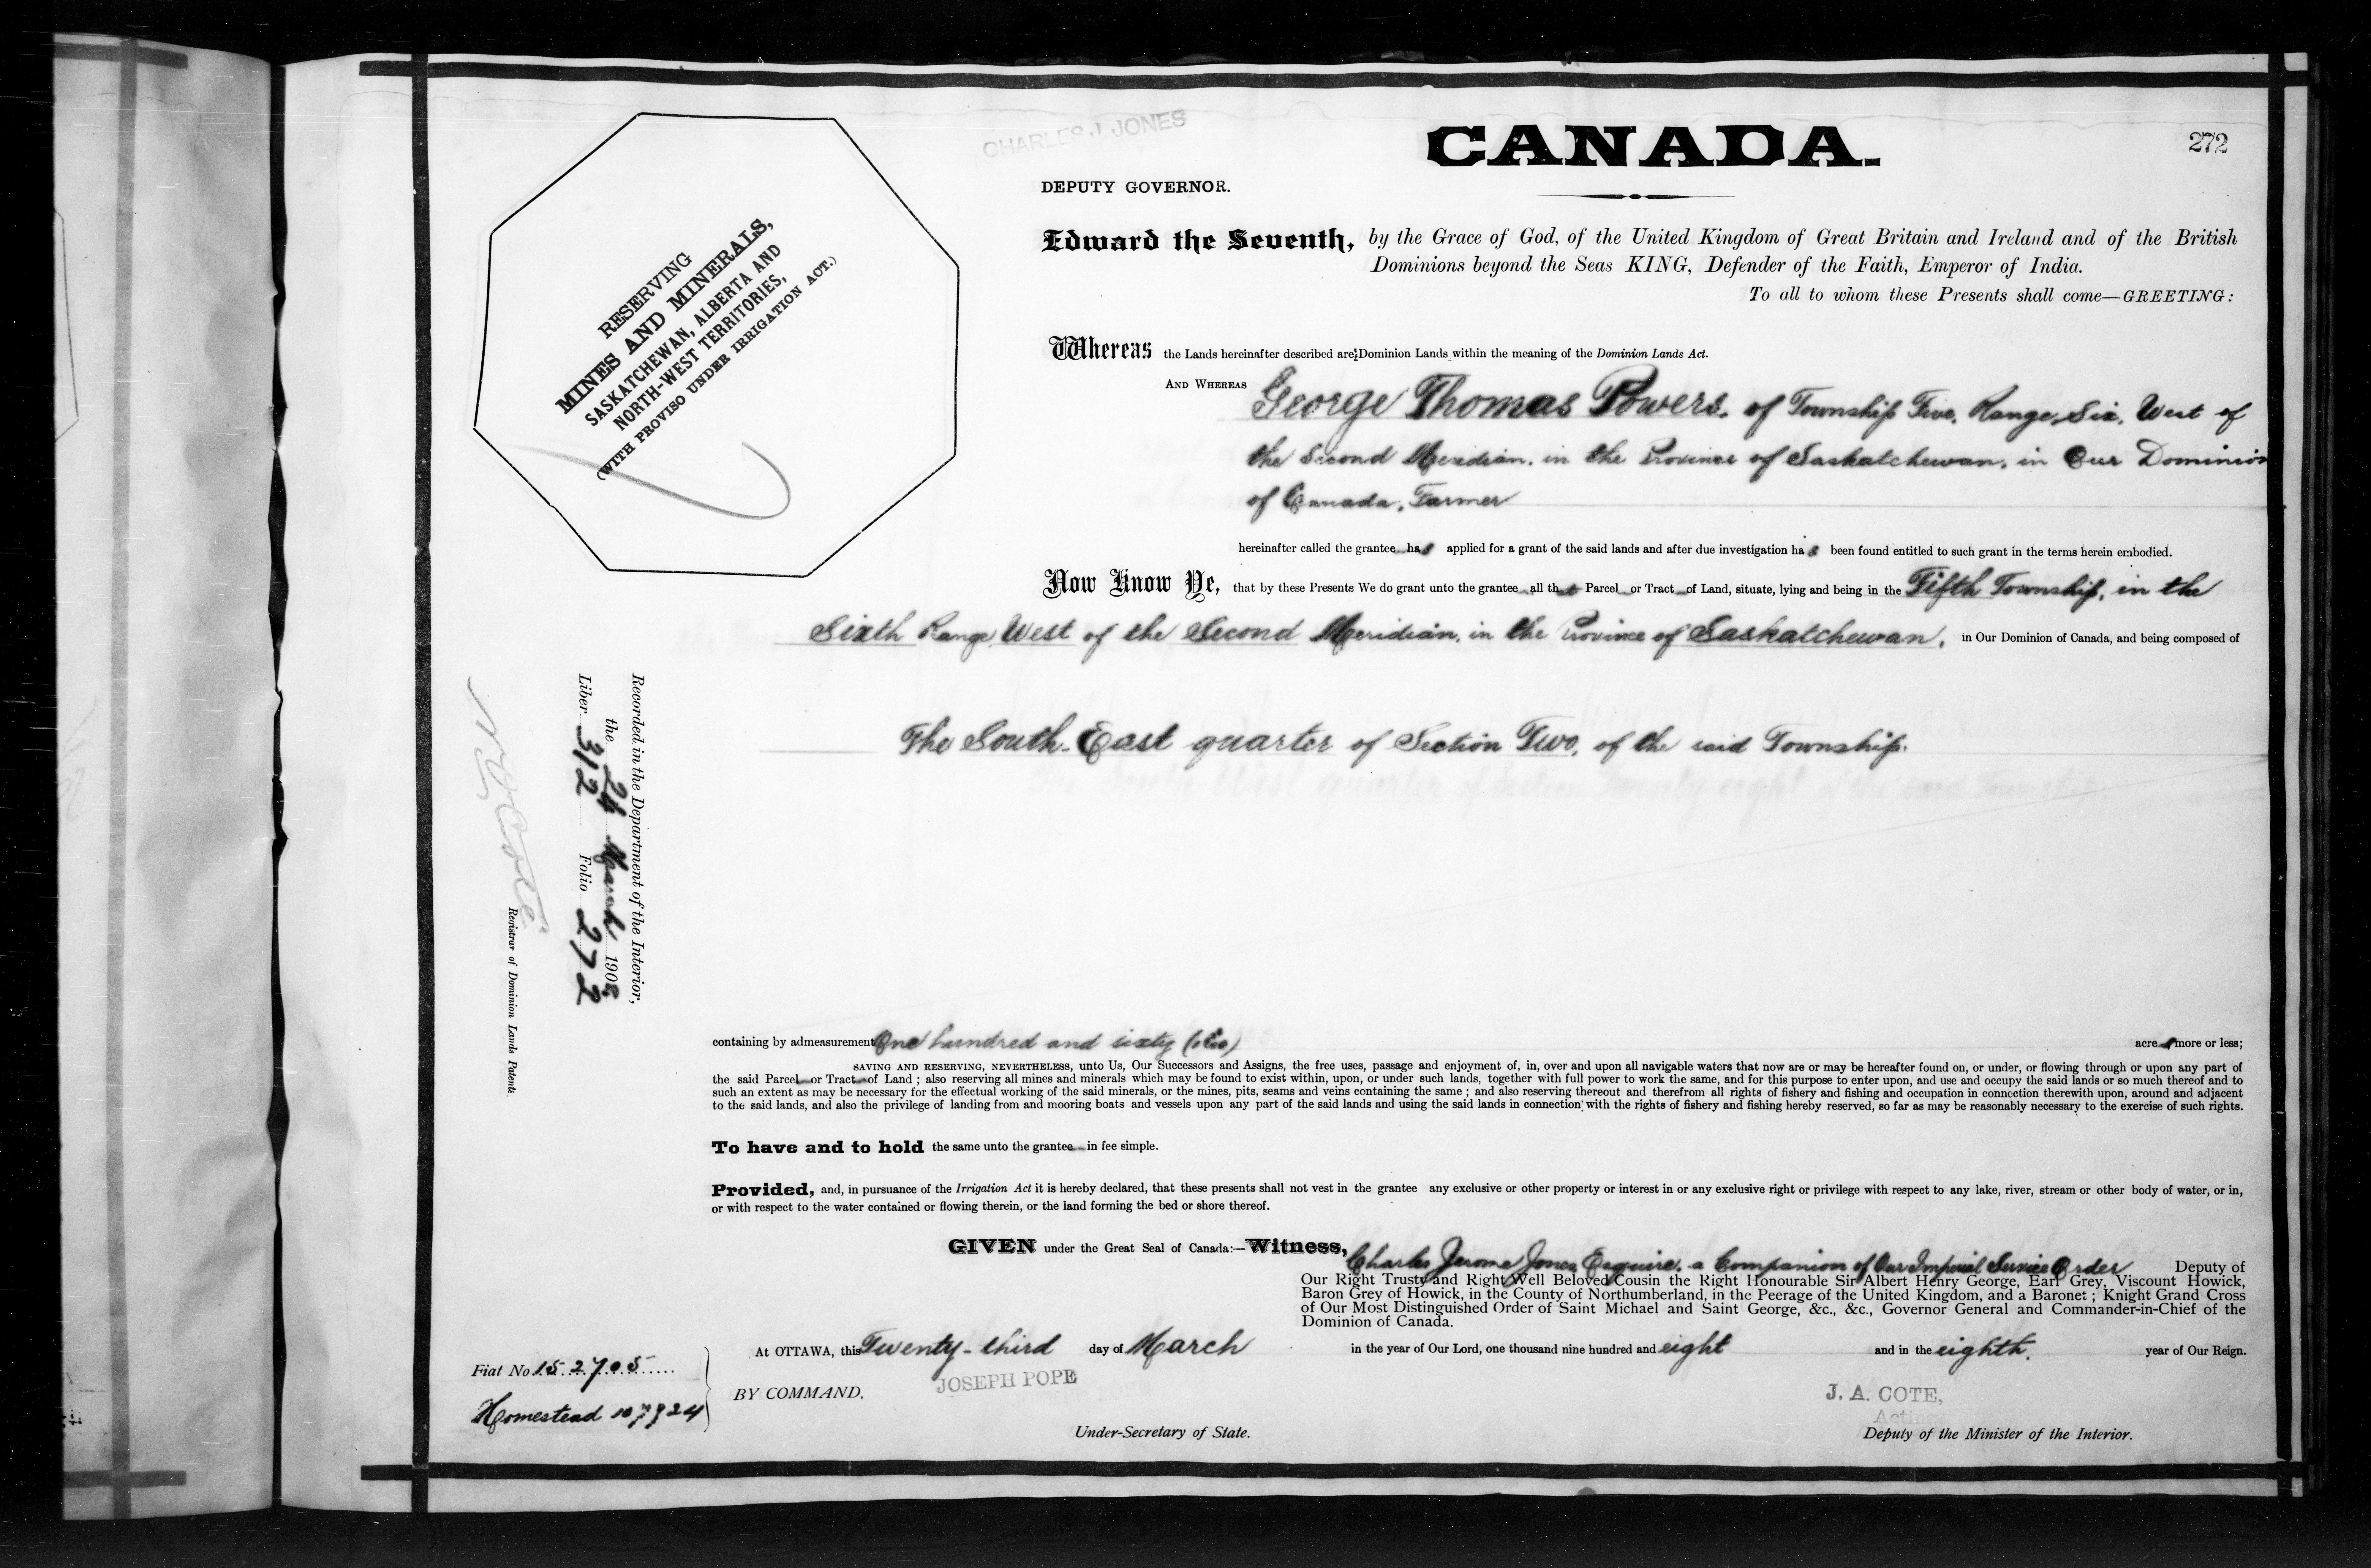 CHARLES J. JONES
CANADA.
272
DEPUTY GOVERNOR.
RESERVING
MINES AND MINERALS,
SASKATCHEWAN, ALBERTA AND
NORTH-WEST TERRITORIES,
(WITH PROVISO UNDER IRRIGATION ACT.)
Edward the Seventh, by the Grace of God, of the United Kingdom of Great Britain and Ireland and of the British
Dominions beyond the Seas KING, Defender of the Faith, Emperor of India.
To all to whom these Presents shall come—GREETING:
Whereas the Lands hereinafter described are Dominion Lands within the meaning of the Dominion Lands Act.
AND WHEREAS George Thomas Powers, of Township Five, Range Six, West of
the Second Meridian, in the Province of Saskatchewan, in Our Dominion
of Canada, Farmer
hereinafter called the grantee has applied for a grant of the said lands and after due investigation has been found entitled to such grant in the terms herein embodied.
Now Know Ye, that by these Presents We do grant unto the grantee all that Parcel or Tract of Land, situate, lying and being in the Fifth Township, in the
Sixth Range West of the Second Meridian, in the Province of Saskatchewan, in Our Dominion of Canada, and being composed of
The South-East quarter of Section Two, of the said Township.
Recorded in the Department of the Interior,
the 24 March 1908
Liber 312 Folio 272
Registrar of Dominion Lands Patents.
containing by admeasurement One hundred and sixty (160) acres more or less;
SAVING AND RESERVING, NEVERTHELESS, unto Us, Our Successors and Assigns, the free uses, passage and enjoyment of, in, over and upon all navigable waters that now are or may be hereafter found on, or under, or flowing through or upon any part of
the said Parcel or Tract of Land ; also reserving all mines and minerals which may be found to exist within, upon, or under such lands, together with full power to work the same, and for this purpose to enter upon, and use and occupy the said lands or so much thereof and to
such an extent as may be necessary for the effectual working of the said minerals, or the mines, pits, seams and veins containing the same ; and also reserving thereout and therefrom all rights of fishery and fishing and occupation in connction therewith upon, around and adjacent
to the said lands, and also the privilege of landing from and mooring boats and vessels upon any part of the said lands and using the said lands in connection with the rights of fishery and fishing hereby reserved, so far as may be reasonably necessary to the exercise of such rights.
To have and to hold the same unto the grantee in fee simple.
Provided, and, in pursuance of the Irrigation Act it is hereby declared, that these presents shall not vest in the grantee any exclusive or other property or interest in or any exclusive right or privilege with respect to any lake, river, stream or other body of water, or in,
or with respect to the water contained or flowing therein, or the land forming the bed or shore thereof.
GIVEN under the Great Seal of Canada:—Witness, Charles Jerome Jones, Esquire, a Companion of Our Imperial Service Order Deputy of
Our Right Trusty and Right Well Beloved Cousin the Right Honourable Sir Albert Henry George, Earl Grey, Viscount Howick,
Baron Grey of Howick, in the County of Northumberland, in the Peerage of the United Kingdom, and a Baronet ; Knight Grand Cross
of Our Most Distinguished Order of Saint Michael and Saint George, &c., &c., Governor General and Commander-in-Chief of the
Dominion of Canada.
At OTTAWA, this Twenty-third day of March in the year of Our Lord, one thousand nine hundred and eight and in the eighth. year of Our Reign.
Fiat No 152705
Homestead 107924
BY COMMAND,
JOSEPH POPE
Under-Secretary of State.
J. A. COTE,
Acting
Deputy of the Minister of the Interior.